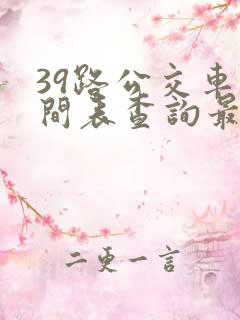 39路公交車
間表查詢最
二更一言